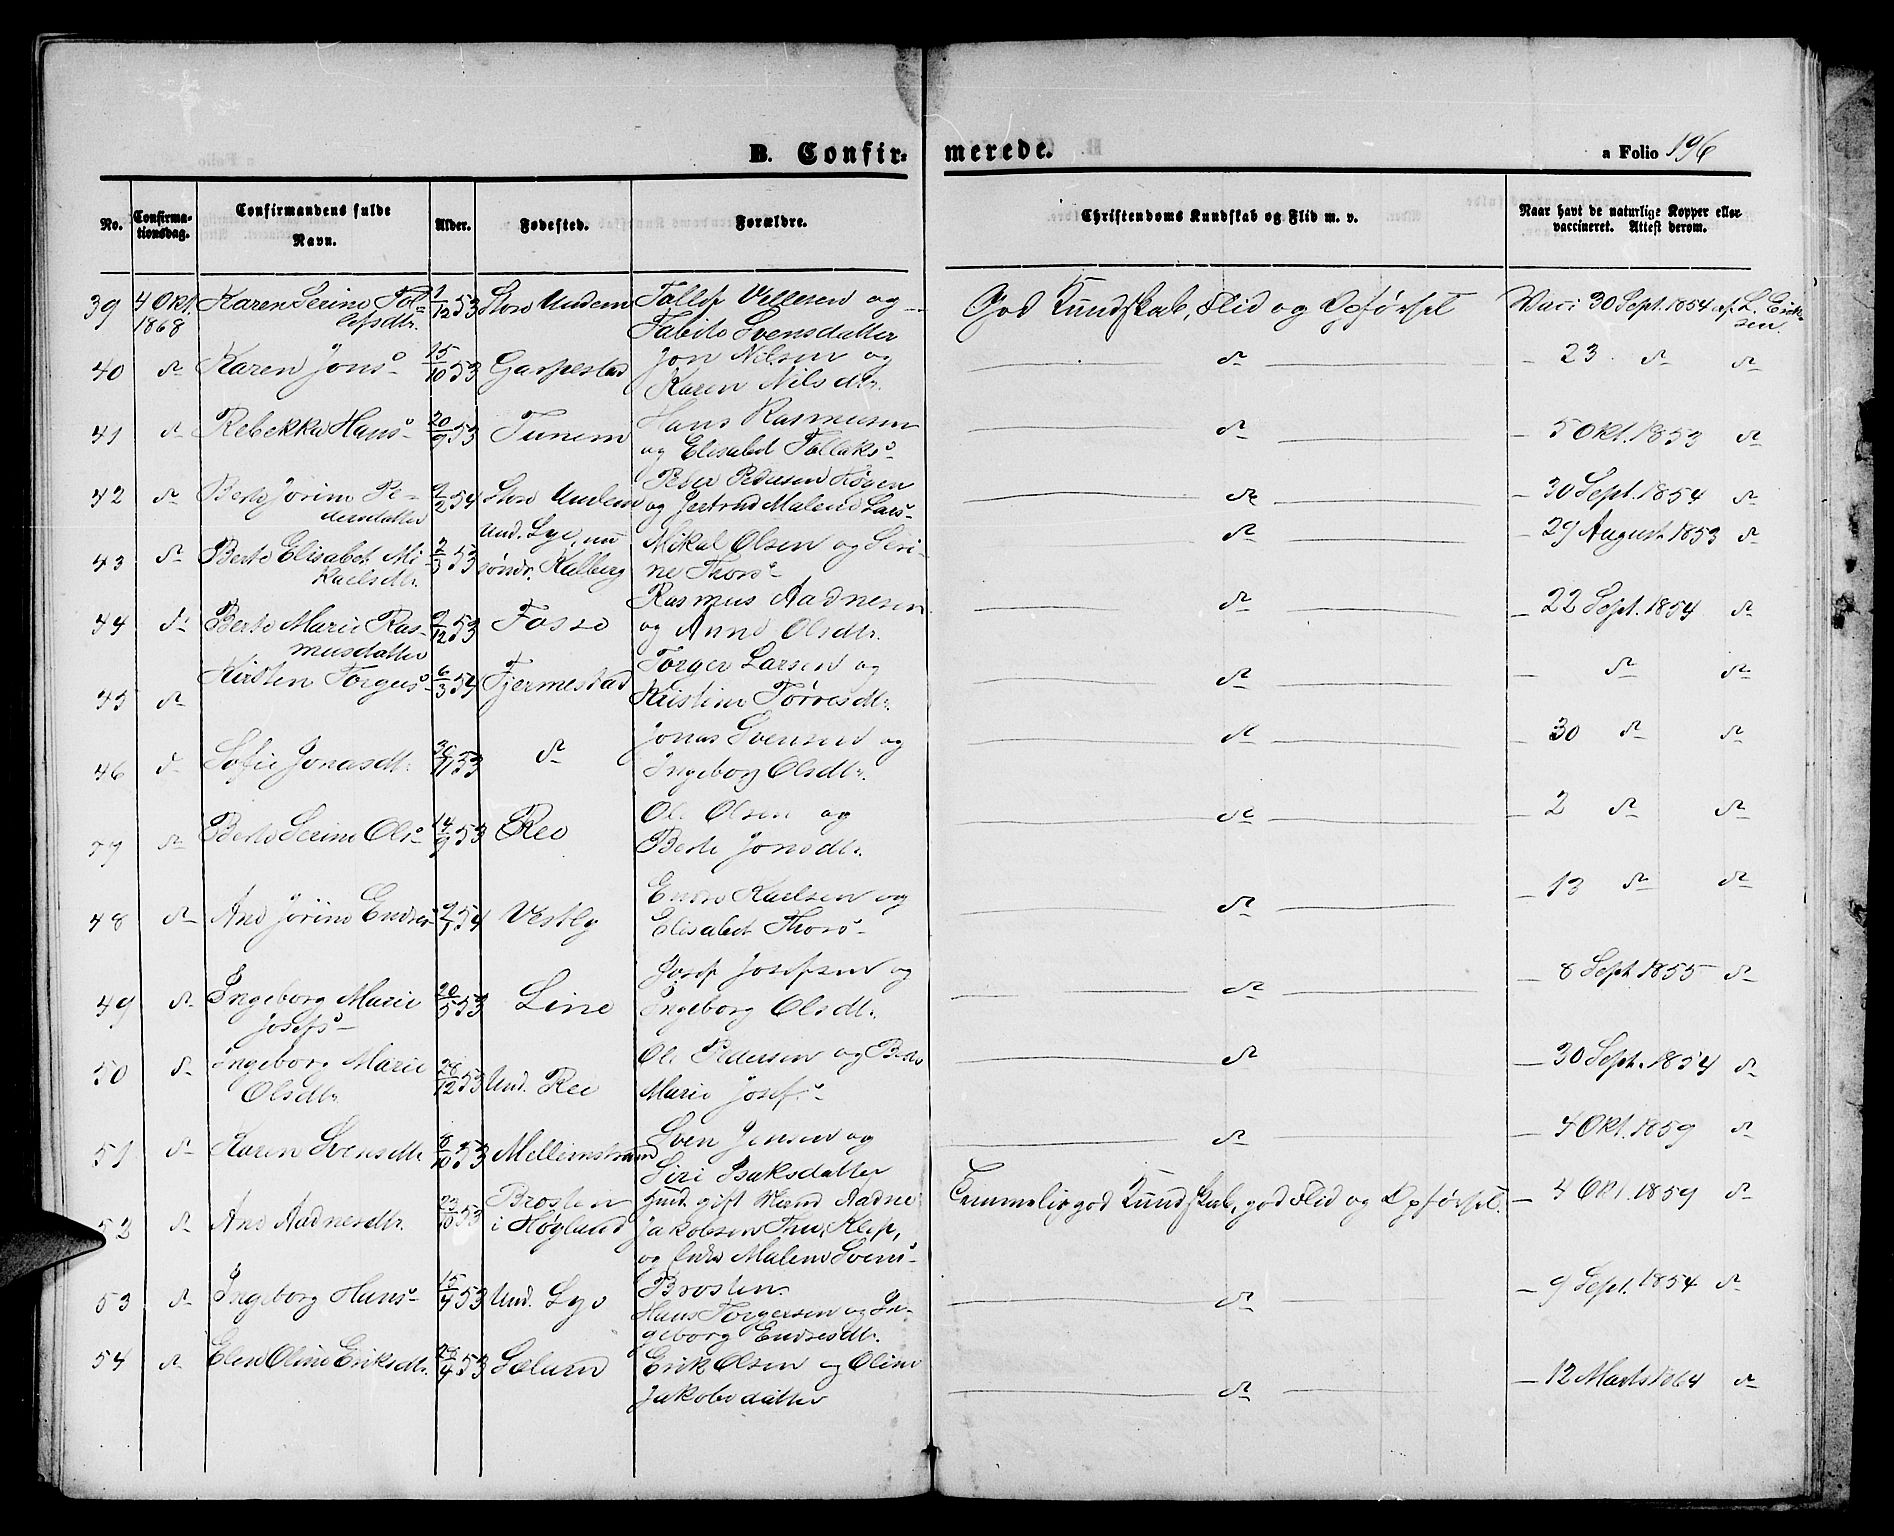 B. Confir-
merede.
a Folio 196
No.
Confirma-
tionsdag.
Confirmandens fulde
Navn.
Alder.
Fødested.
Forældre.
Christendoms Kundskab og Flid m. v.
Naar havt de naturlige Kopper eller
vaccineret. Attest derom.
39 4 Okt. Karen Serine Tol- 1/12 53 Store Undem Tollef Vellesen og God Kundskab, Flid og Opførsel Vacc 30 Sept. 1854 af L. Erik-
1868 lefsdtr. Tabita Svensdatter sen
40 do Karen Jons- 15/10 53 Garpestad Jon Nilsen og do — 23 do do
Karen Nilsdtr.
41 do Rebekka Hans- 20/9 53 Tunem Hans Rasmussen do — 5 Okt. 1853 do
og Elisabet Tollaks-
42 do Berte Jørine Pe- 9/2 54 Store Undem Peder Pedersen do — 30 Sept. 1854 do
dersdatter og Jertrud Malene Lars-
43 do Berte Elisabet Mi- 2/3 53 und. Lye, nu Mikal Olsen og Seri- do — 29 August 1853 do
kaelsdtr. søndr. Kalberg ne Thors-
44 do Berte Marie Ras- 9/12 53 Fosse Rasmus Aadnesen do — 22 Sept. 1854 do
musdatter og Anne Olsdtr.
45 do Kirsten Torgers- 6/3 54 Fjermestad Torger Larsen og do — do do
Kristine Tørresdtr.
46 do Sofie Jonasdtr. 30/11 53 do Jonas Svensen og do — 30 do do
Ingeborg Olsdtr.
47 do Berte Serine Ols- 14/9 53 Ree Ole Olsen og do — 2 do do
Berte Jonsdtr.
48 do Ane Jørine Endres- 9/1 54 Vestly Endre Karlsen og do — 13 do do
Elisabet Thors-
49 do Ingeborg Marie 20/5 53 Line Josef Josefsen og do — 8 Sept. 1855 do
Josefs- Ingeborg Olsdtr.
50 do Ingeborg Marie 28/12 53 Und. Ree Ole Pedersen og Berte do — 30 Sept. 1854 do
Olsdtr. Marie Josefs-
51 do Karen Svensdtr. 8/10 53 Mellemstrand Sven Jensen og do — 4 Okt. 1859 do
Siri Isaksdatter
52 do Ane Aadnesdtr. 23/10 53 Brosten Gift Mand Aadne Temmelig god Kundskab, god Flid og Opførsel. — 4 Okt. 1859 do
i Høgland Jakobsen Klep,
og Malene Svens-
53 do Ingeborg Hans- 15/9 53 Und. Lye Brosten. do — 9 Sept. 1854 do
Hans Torgersen og In-
geborg Endresdtr.
54 do Elen Oline Eriksdtr. 28/9 53 Sælund Erik Olsen og Oline do — 12 Marts 1864 do
Jakobsdatter